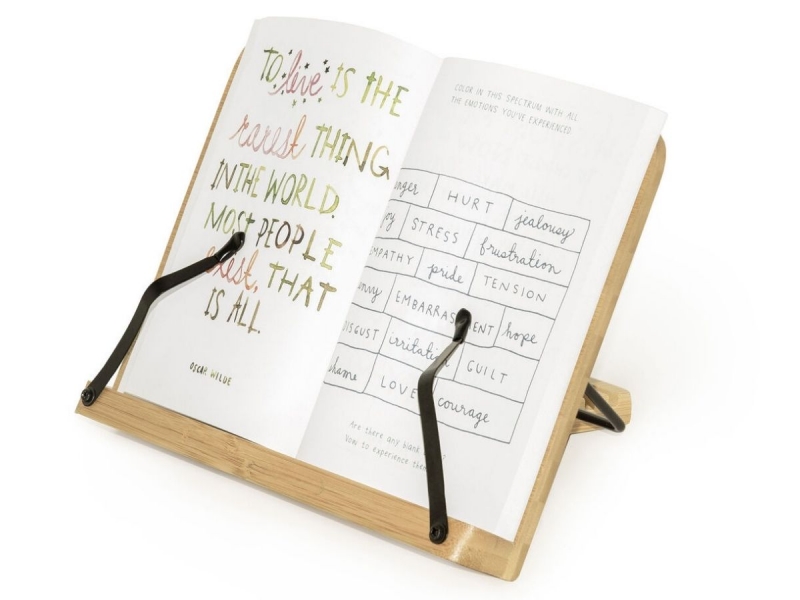 TO live IS THE
rarest THING
IN THE WORLD.
MOST PEOPLE
exist. THAT
IS ALL.
OSCAR WILDE
COLOR IN THIS SPECTRUM WITH ALL
THE EMOTIONS YOU'VE EXPERIENCED.
anger HURT jealousy
joy STRESS frustration
EMPATHY pride TENSION
EMBARRASSMENT hope
DISGUST irritation GUILT
shame LOVE courage
Are there any blank
Vow to experience them